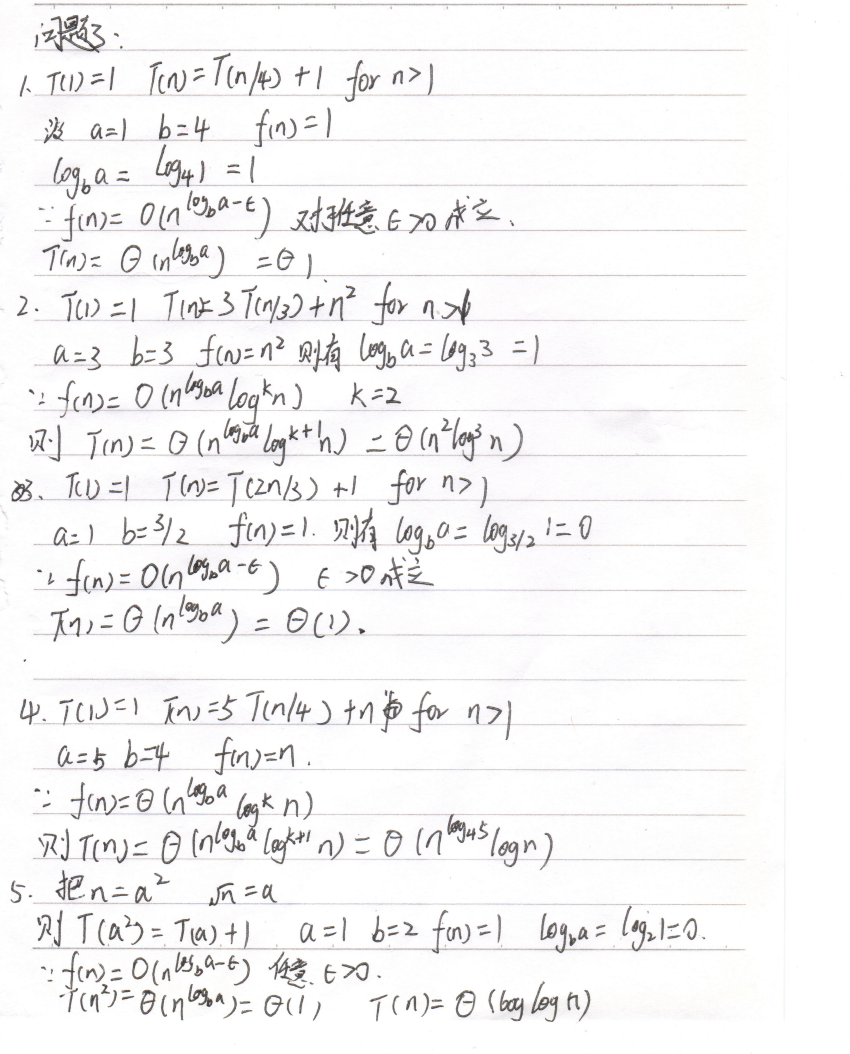 问题3:
1. T(1)=1 T(n)=T(n/4)+1 for n>1
设 a=1 b=4 f(n)=1
log_b a = log_4 1 = 1
∵ f(n)= O(n^{log_b a-ϵ}) 对于任意 ϵ>0 成立.
T(n)= Θ(n^{log_b a}) =Θ 1
2. T(1)=1 T(n)=3T(n/3)+n² for n>1
a=3 b=3 f(n)=n² 则有 log_b a = log_3 3 =1
∵ f(n)= O(n^{log_b a} log^k n) k=2
则 T(n)= Θ(n^{log_b a} log^{k+1} n) = Θ(n² log³ n)
3. T(1)=1 T(n)=T(2n/3)+1 for n>1
a=1 b=3/2 f(n)=1. 则有 log_b a = log_{3/2} 1=0
∵ f(n)=O(n^{log_b a-ϵ}) ϵ>0 成立
T(n)=Θ(n^{log_b a}) = Θ(1).
4. T(1)=1 T(n)=5T(n/4)+n for n>1
a=5 b=4 f(n)=n.
∵ f(n)=Θ(n^{log_b a} log^k n)
则 T(n)= Θ(n^{log_b a} log^{k+1} n) = Θ(n^{log_4 5} log n)
5. 把 n=a² √n=a
则 T(a²)=T(a)+1 a=1 b=2 f(n)=1 log_b a = log_2 1=0.
∵ f(n)=O(n^{log_b a-ϵ}) 任意 ϵ>0.
T(n²)=Θ(n^{log_b a})=Θ(1) T(n)= Θ(log log n)